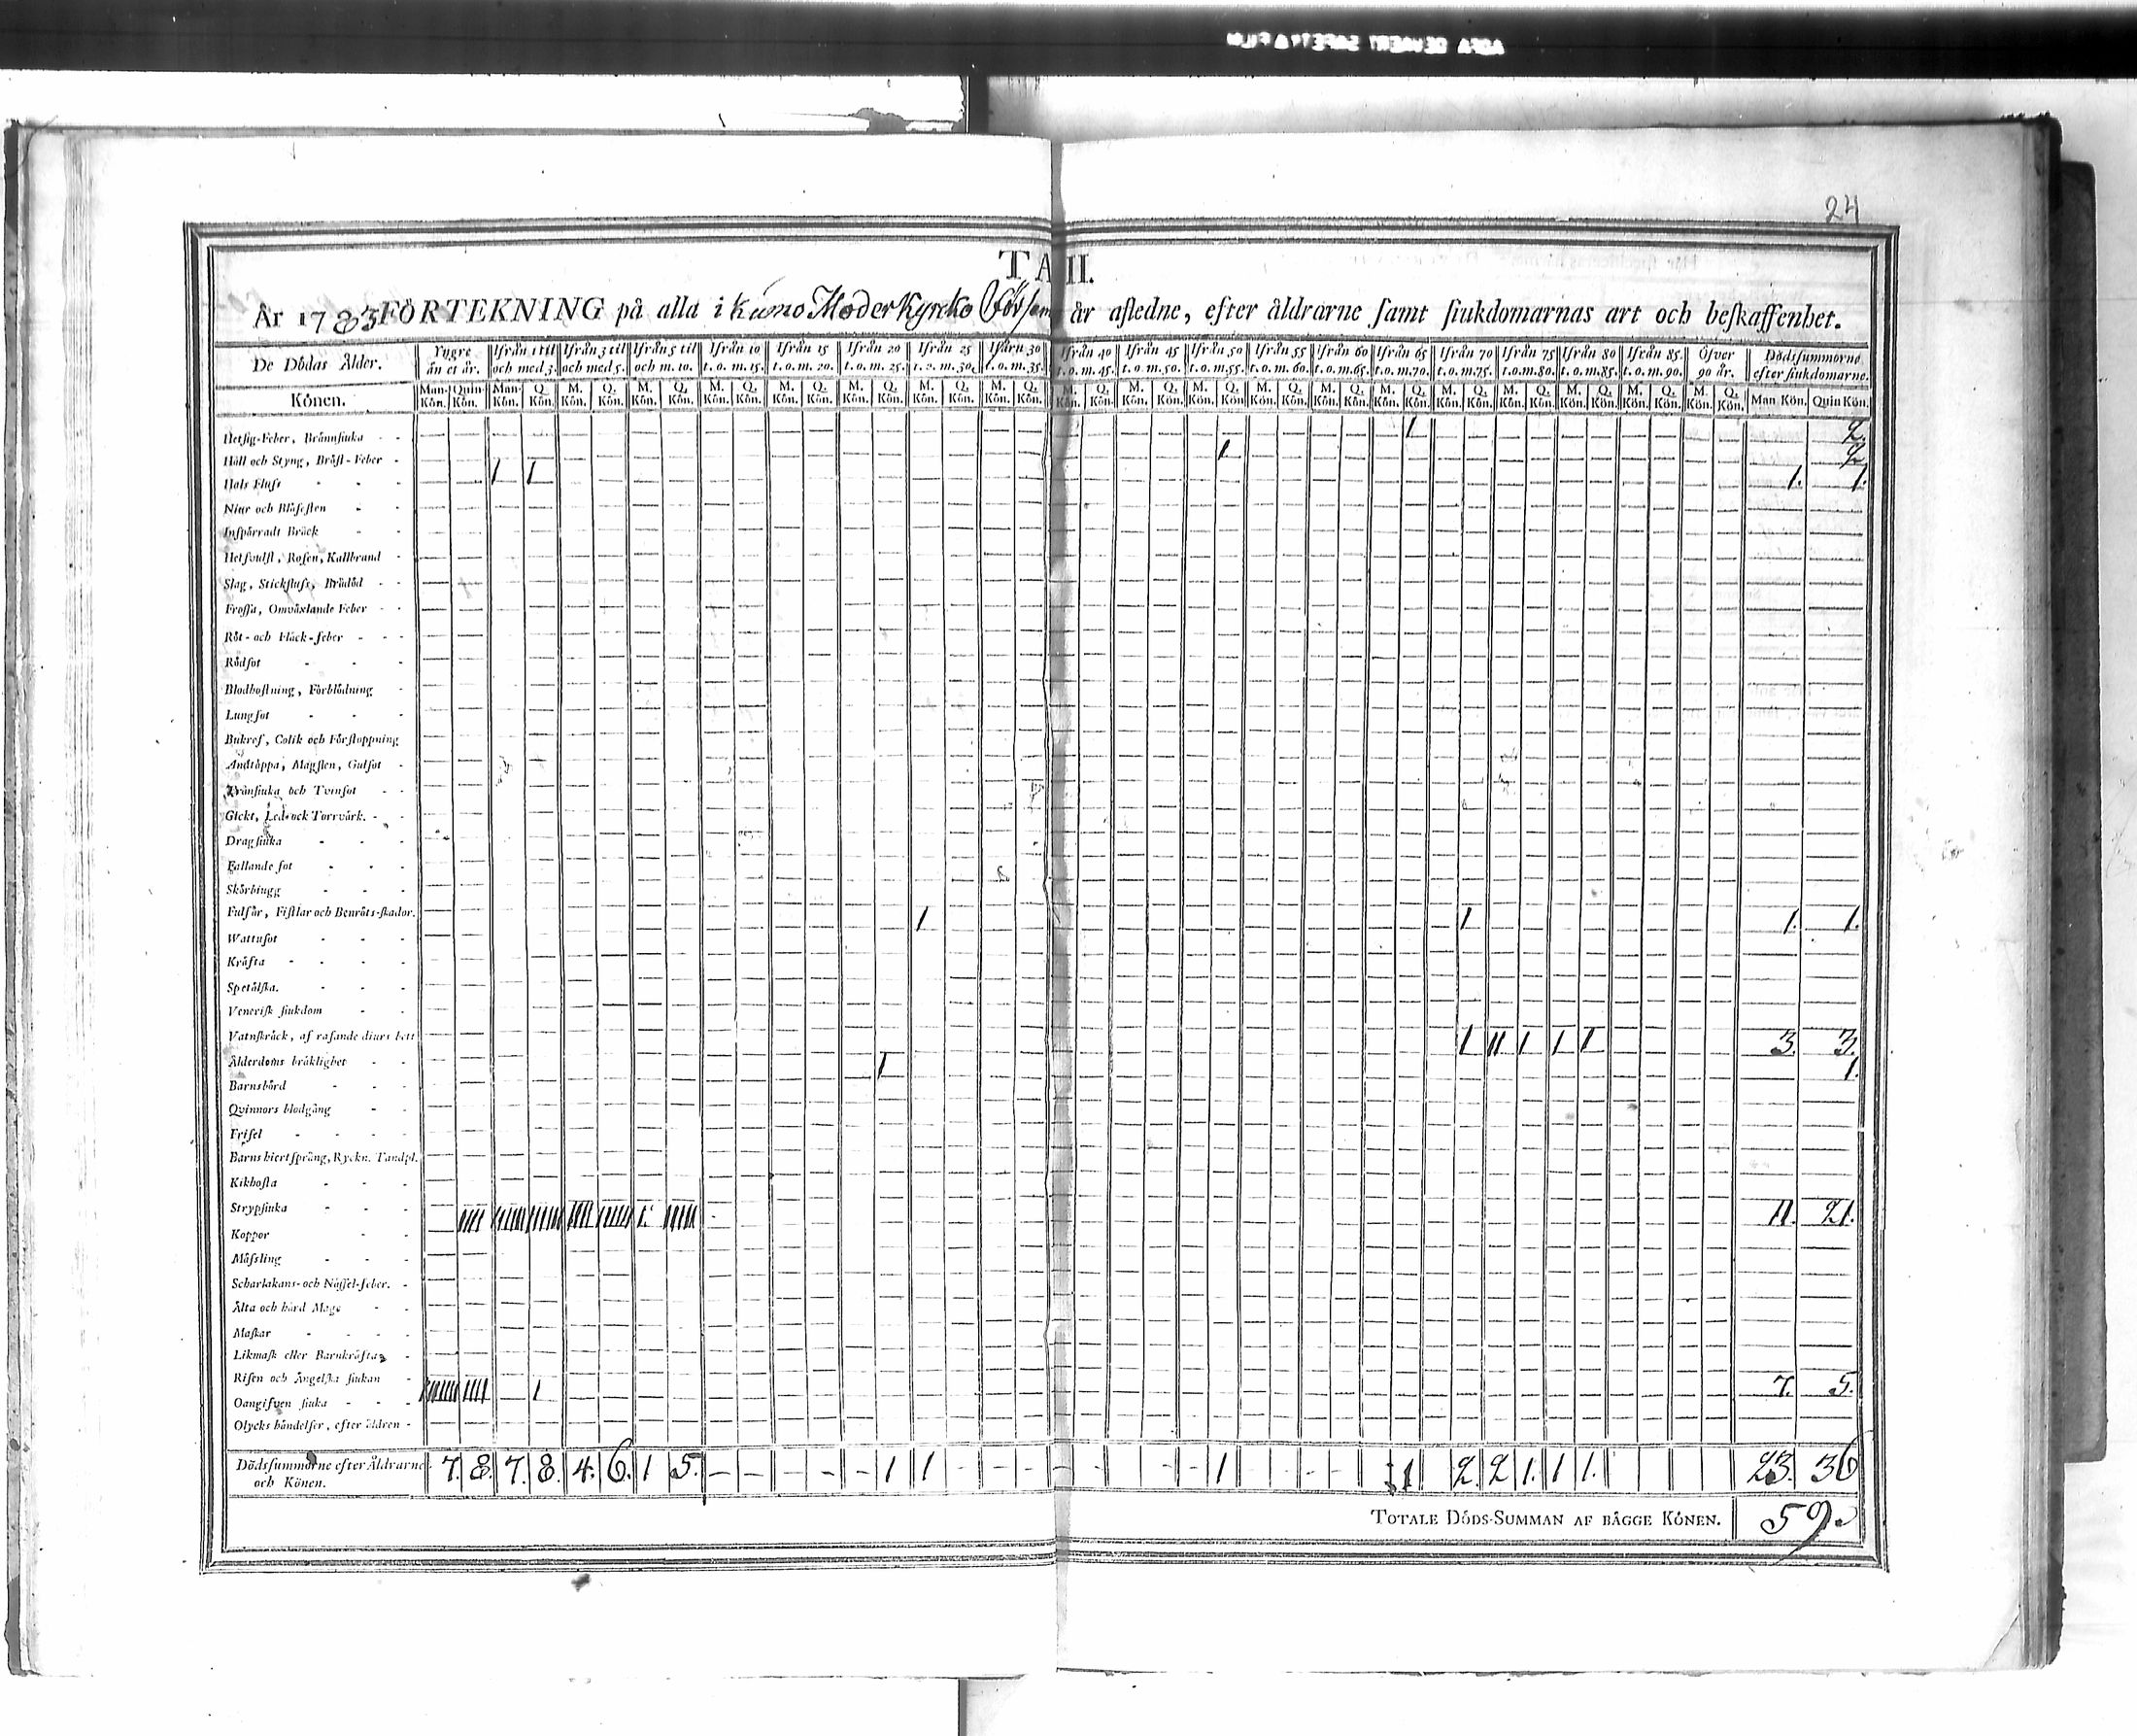 24
TA II.
År 1783 FÖRTEKNING på alla i Kumo Moder Kyrcko år afledne, efter åldrarne samt siukdomarnas art och beskaffenhet.
De Dödas Ålder. Yngre än et år. Ifrån 1 til och med 3. Ifrån 3 til och med 5. Ifrån 5 til och m. 10. Ifrån 10 t. o. m. 15. Ifrån 15 t. o. m. 20. Ifrån 20 t. o. m. 25. Ifrån 25 t. o. m. 30. Ifårn 30 t. o. m. 35. Ifrån 40 t. o. m. 45. Ifrån 45 t. o. m. 50. Ifrån 50 t. o. m. 55. Ifrån 55 t. o. m. 60. Ifrån 60 t. o. m. 65. Ifrån 65 t. o. m. 70. Ifrån 70 t. o. m. 75. Ifrån 75 t. o. m. 80. Ifrån 80 t. o. m. 85. Ifrån 85. t. o. m. 90. Öfver 90 år. Dödssummorne efter siukdomarne.
Könen. Man-Kön. Quin-Kön. Man-Kön. Q. Kön. M. Kön. Q. Kön. M. Kön. Q. Kön. M. Kön. Q. Kön. M. Kön. Q. Kön. M. Kön. Q. Kön. M. Kön. Q. Kön. M. Kön. Q. Kön. M. Kön. Q. Kön. M. Kön. Q. Kön. M. Kön. Q. Kön. M. Kön. Q. Kön. M. Kön. Q. Kön. M. Kön. Q. Kön. M. Kön. Q. Kön. M. Kön. Q. Kön. M. Kön. Q. Kön. M. Kön. Q. Kön. M. Kön. Q. Kön. Man Kön. Quin Kön.
Hetsig-Feber, Brännsiuka 1 2.
Håll och Styng, Bröst-Feber 1 2
Hals Fluss 1 1 1. 1.
Niur och Blåsesten
Inspärradt Bråck
Hetsvulst, Rosen, Kallbrand
Slag, Stickfluss, Brådöd
Frossa, Omväxlande Feber
Röt- och Fläck-feber
Rödsot
Blodhostning, Förblödning
Lungsot
Bukref, Colik och Förstoppning
Andtäppa, Magsten, Gulsot
Tränsiuka och Tvinsot
Gickt, Led- ock Torrvärk.
Dragsiuka
Fallande sot
Skörbiugg
Fulsår, Fistlar och Benröts-skador.
Wattusot 1 1 1. 1.
Kräfta
Spetälska.
Venerisk siukdom
Vatnskräck, af rasande diurs bett
Ålderdoms bräklighet 1 11 1 1 1 3. 3.
Barnsbörd 1 1.
Qvinnors blodgång
Frisel
Barns hiertsprång, Ryckn. Tandpl.
Kikhosta
Strypsiuka
Koppor 1111 1. 11. 21.
Mässling
Scharlakans- och Nässel-feber.
Älta och hård Mage
Maskar
Likmask eller Barnkräfta
Risen och Ängelska siukan
Oangifven siuka 1 7. 5.
Olycks händelser, efter äldren
Dödssummorne efter Åldrarne och Könen. 7. 8. 7. 8. 4. 6. 1 5. – – – – – 1 1 – – – – – – – – 1 – – – – 1 2. 2 1. 1 1. 23. 36
TOTALE DÖDS-SUMMAN AF BÄGGE KÖNEN. 59.